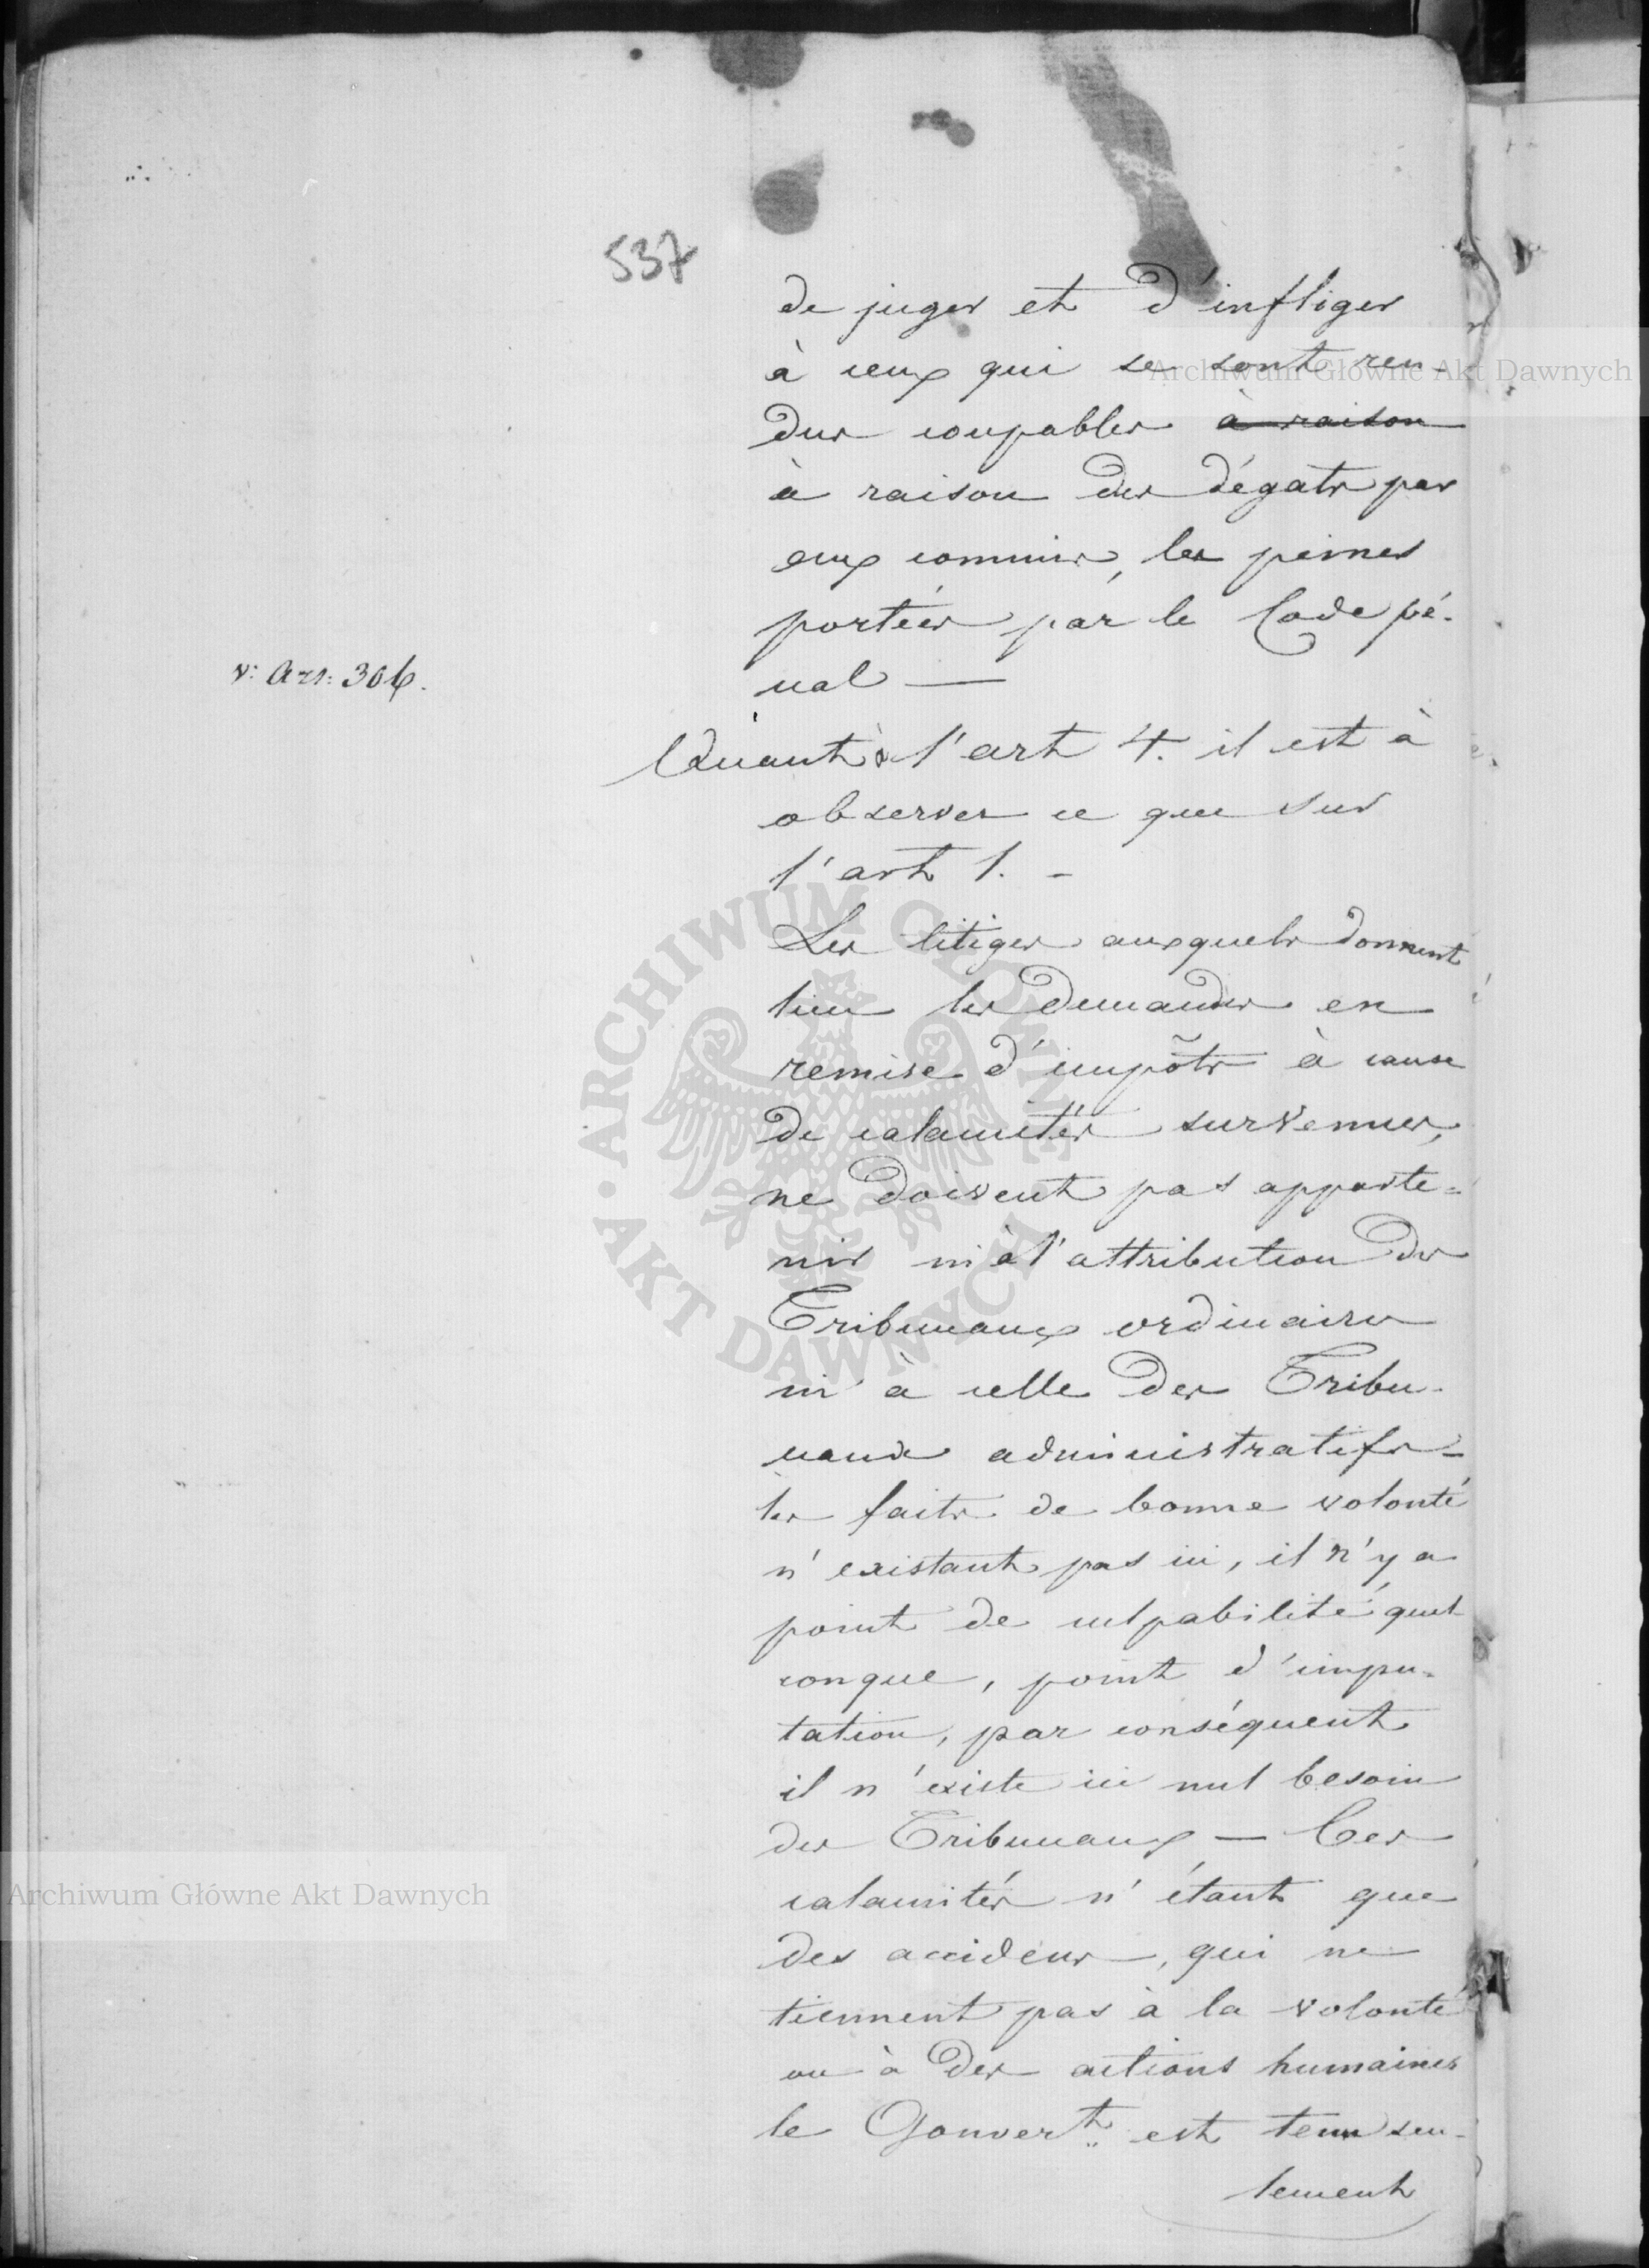 537
de juger et d'infliger
à ceux qui se sont ren-
dus coupables à raison
à raison des dégats par
eux commis, les peines
portées par le Code pé-
nal —
v: Art: 306.
Quant à l'art 4. il est à
observer ce que sur
l'art 1. -
Les litiges auxquels donnent
lieu les demandes en
remise d'impôts à cause
de calamités survenues,
ne doivent pas apparte=
nir ni à l'attribution des
Tribunaux ordinaires
ni à celle des Tribu-
naux administratifs -
les faits de bonne volonté
n'existant pas ici, il n'y a
point de culpabilité quel
conque, point d'impu-
tation, par conséquent
il n'existe ici nul besoin
des Tribunaux — Ces
calamités n'étant que
des accidens, qui ne
tiennent pas à la volonté
ou à des actions humaines
le Gouvert est tenu seu-
lement
Archiwum Główne Akt Dawnych
Archiwum Główne Akt Dawnych
ARCHIWUM GŁÓWNE AKT DAWNYCH